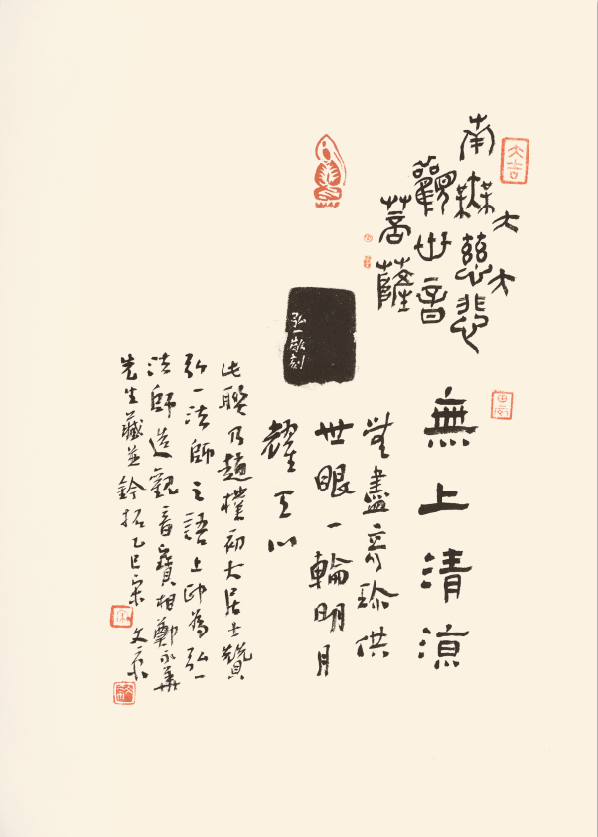 大吉
南無大慈大悲
觀世音
菩薩
弘一敬刻
無上清涼
無盡奇珍供
世眼一輪明月
耀天心
此聯乃趙樸初大居士贊
弘一法師之語上印為弘一
法師造觀音寶相鄭永華
先生藏並鈐拓乙巳宋文京